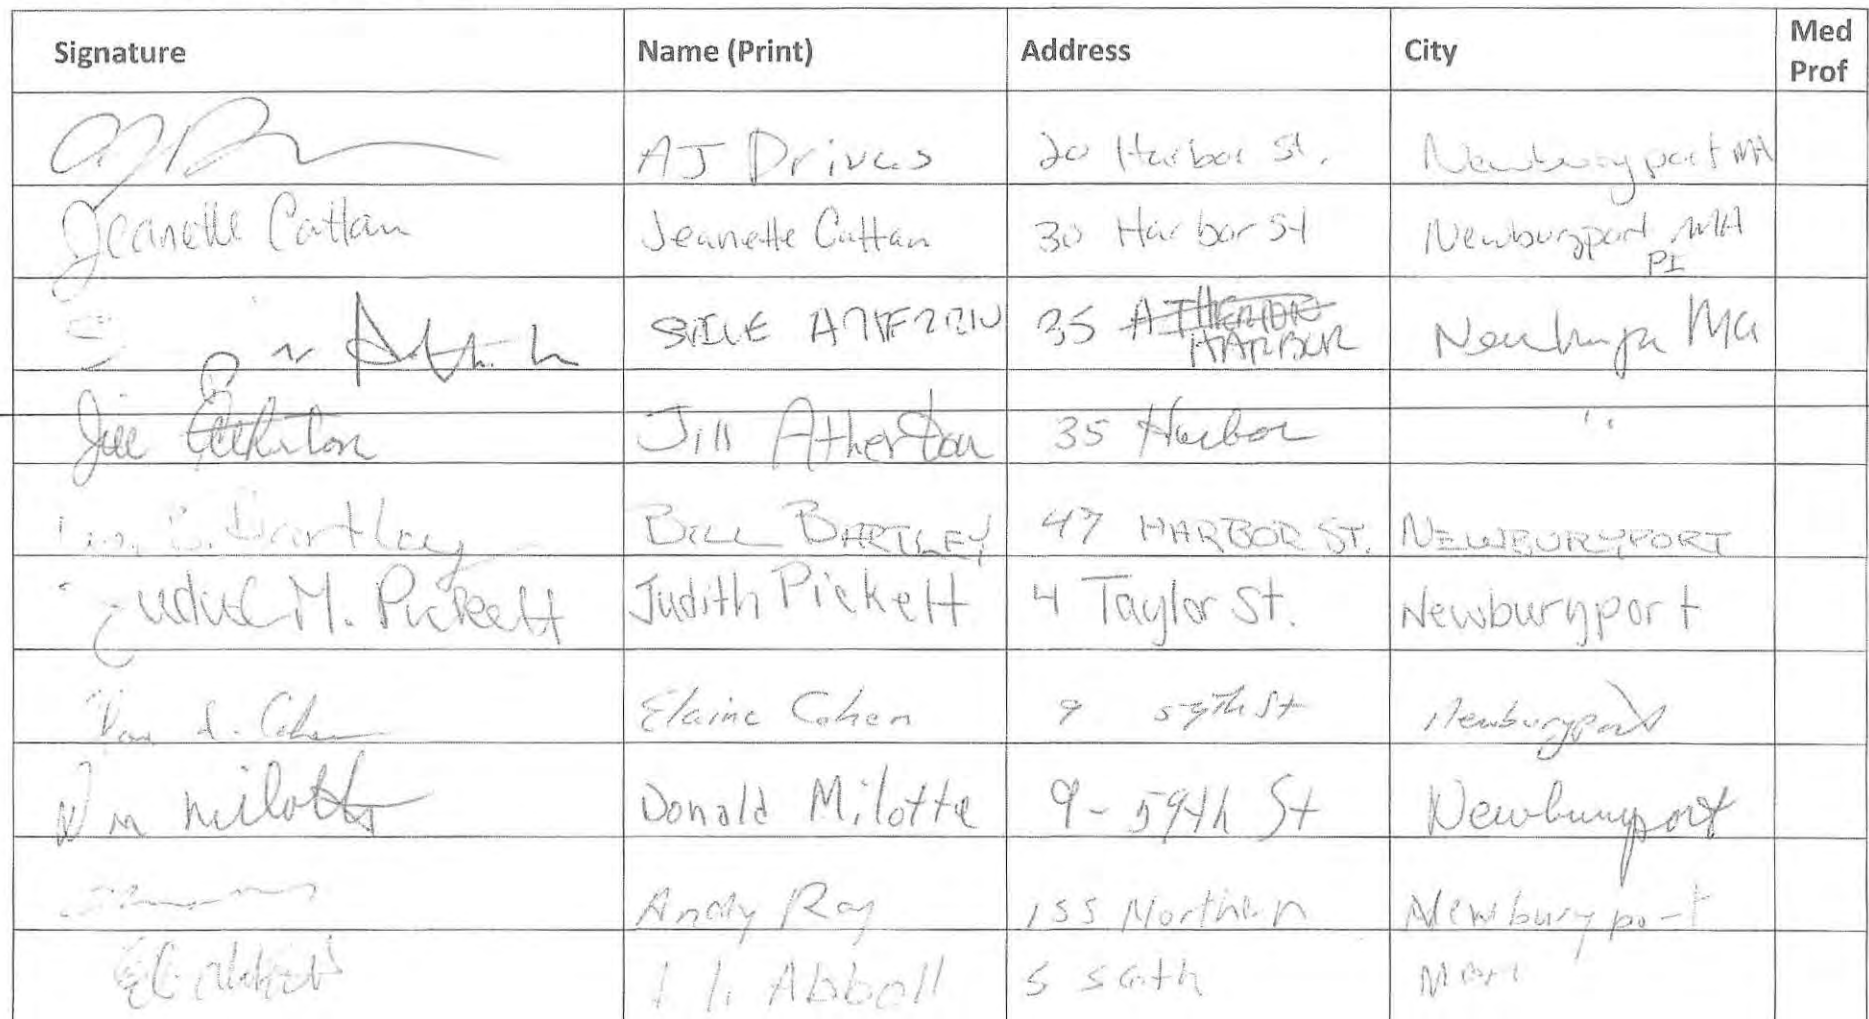 Signature Name (Print) Address City Med Prof
AJ Drivas 20 Harbor St. Newburyport MA
Jeanette Cattan Jeanette Cattan 30 Harbor St Newburyport MA
PI
35 HARBOR Ma
Jill Atherton Jill Atherton 35 Harbor "
B. Bartley BILL BARTLEY 47 HARBOR ST. NEWBURYPORT
Judith M. Pickett Judith Pickett 4 Taylor St. Newburyport
Cohen Elaine Cohen 9 57th St Newburyport
Milotte Donald Milotte 9-59th St Newburyport
Andy Ray 155 Northern Newburyport
Abbott 5